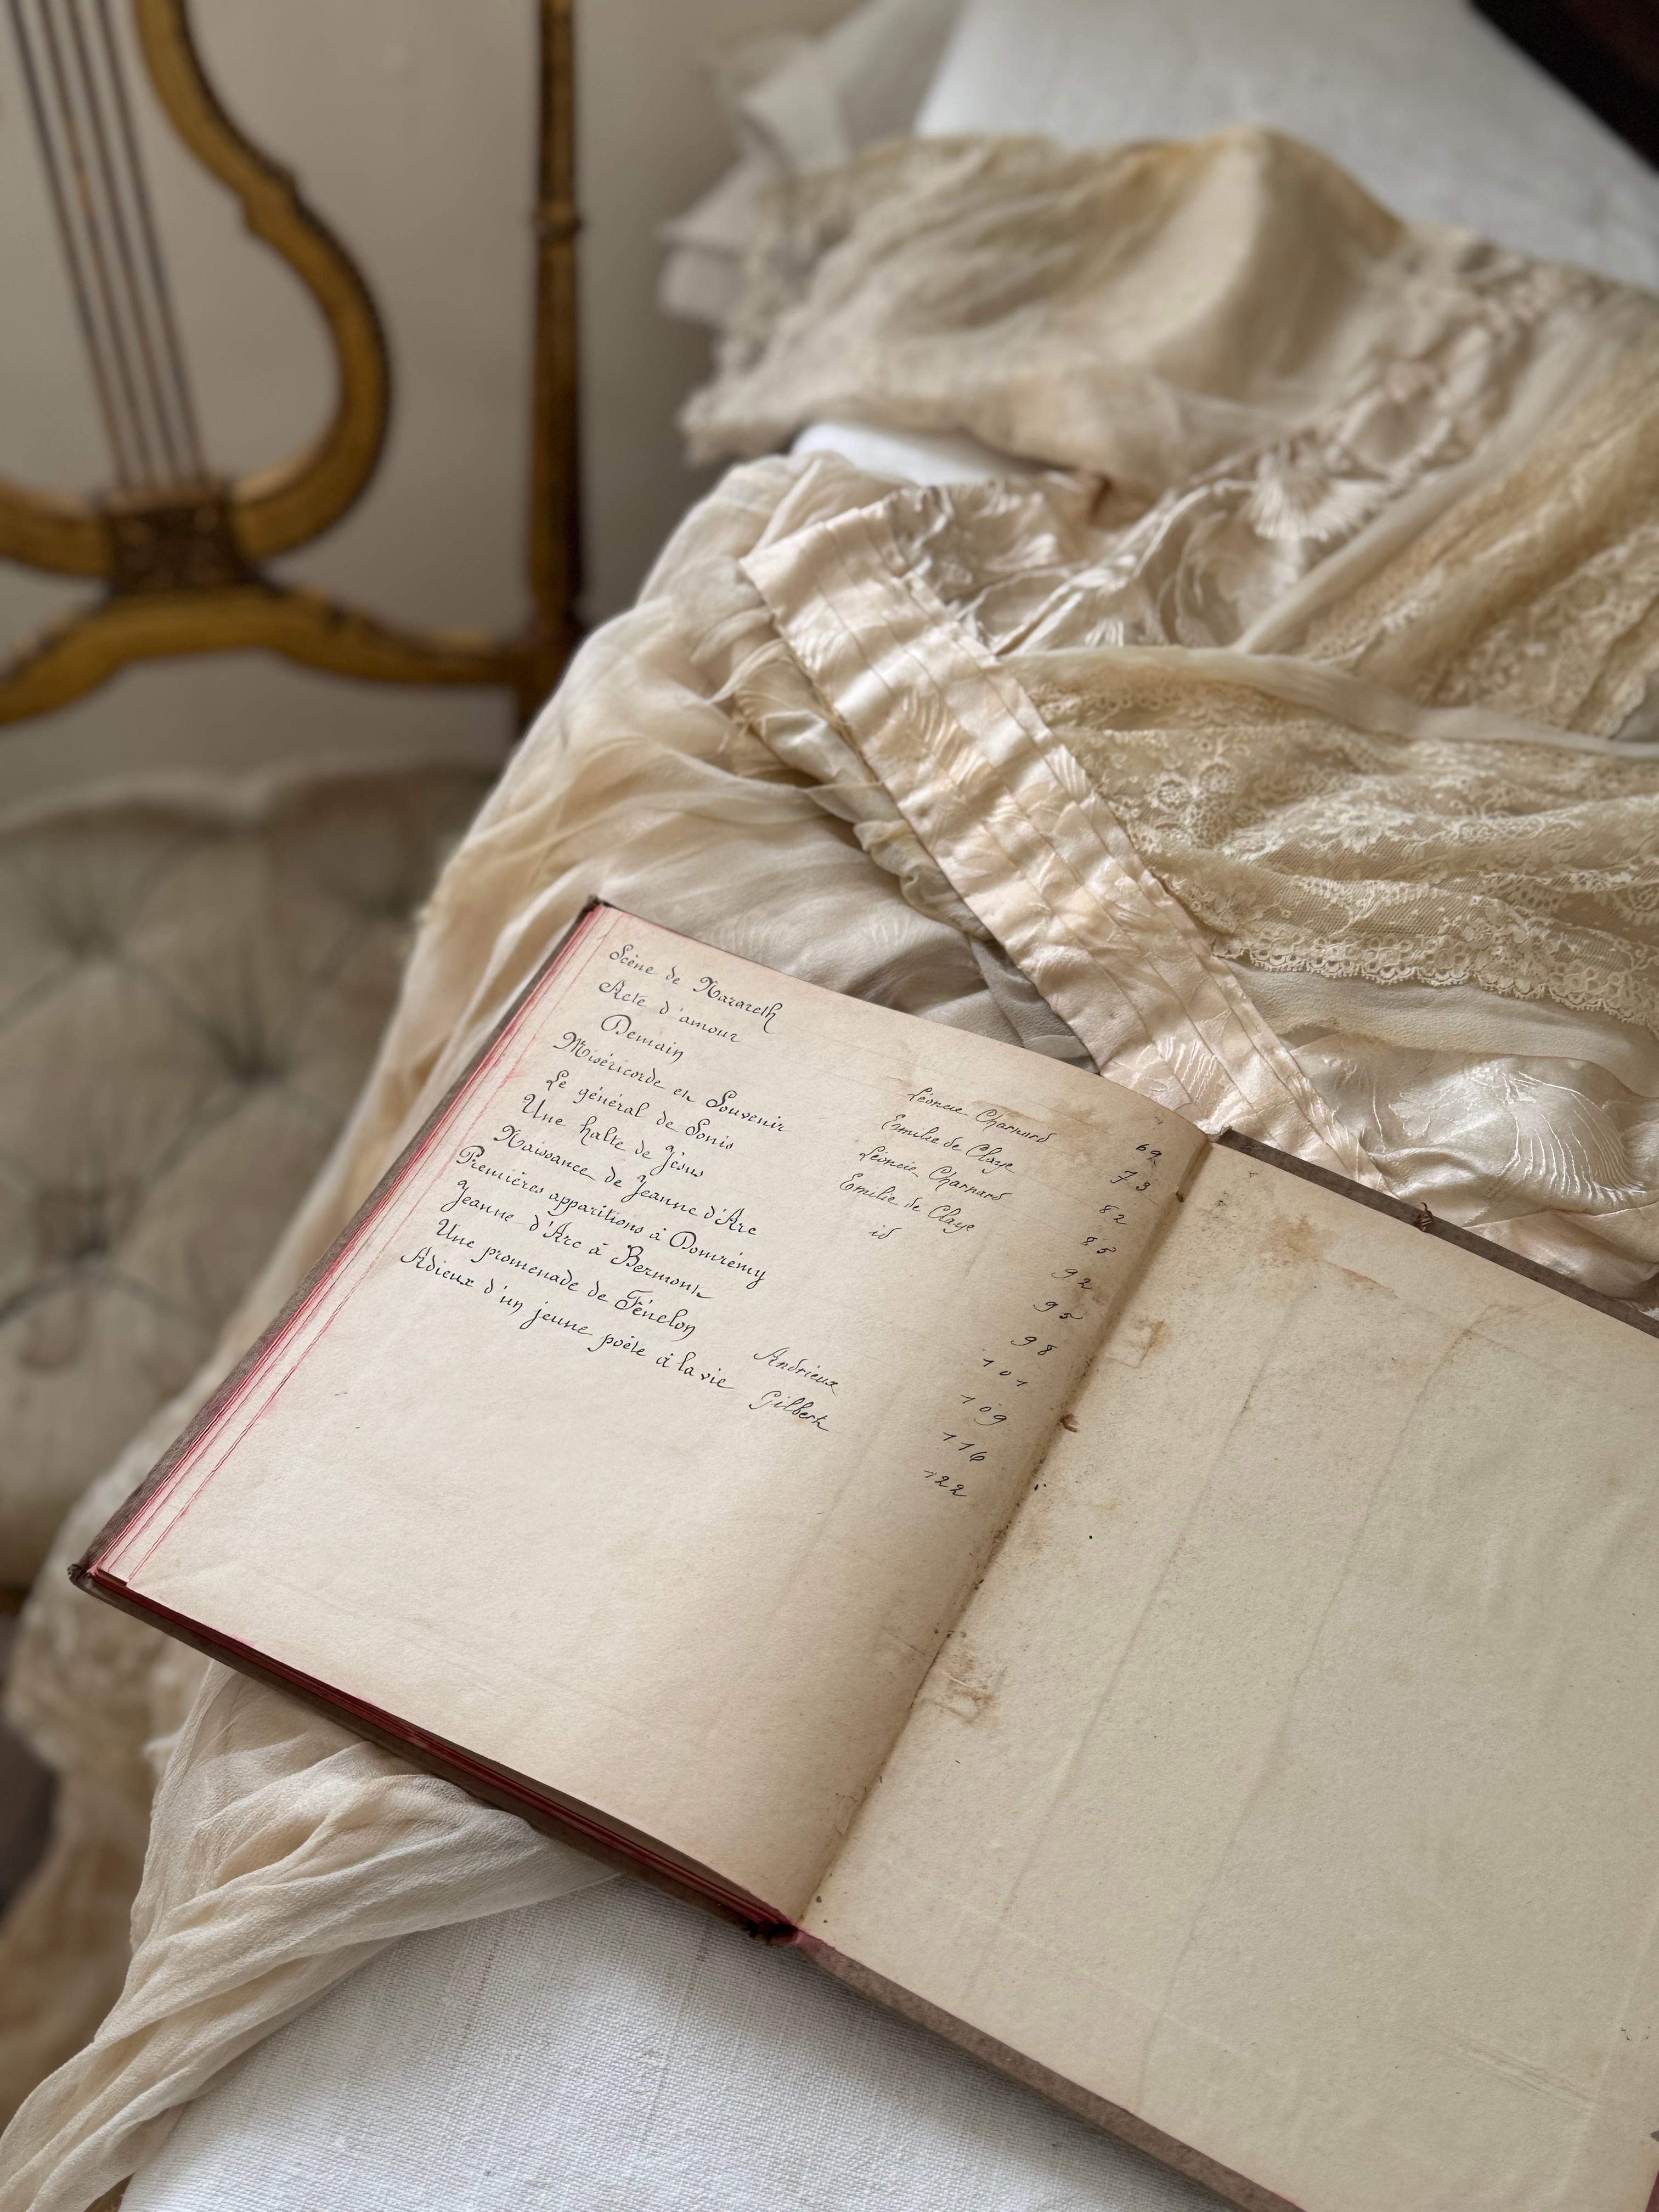 Scène de Nazareth Léonie Charnard 69
Acte d'amour Emilie de Claye 73
Demain Léonie Charnard 82
Miséricorde en Souvenir Emilie de Claye 85
Le général de Sonis id 92
Une halte de Jésus 95
Naissance de Jeanne d'Arc 98
Premières apparitions à Domrémy 101
Jeanne d'Arc à Bermont 109
Une promenade de Fénelon Andrieux 116
Adieux d'un jeune poète à la vie Gilbert 122